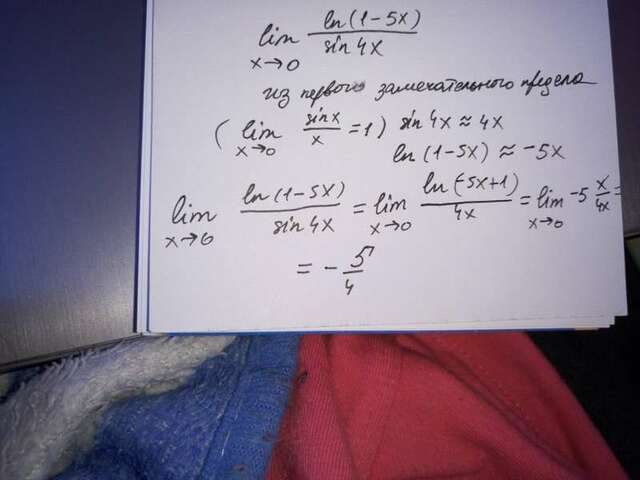 lim ln(1-5x)/sin 4x
x→0
из первого замечательного предела
(lim sinx/x = 1) sin 4x ≈ 4x
x→0
ln(1-5x) ≈ -5x
lim ln(1-5x)/sin 4x = lim ln(-5x+1)/4x = lim -5 x/4x =
x→0 x→0 x→0
= - 5/4